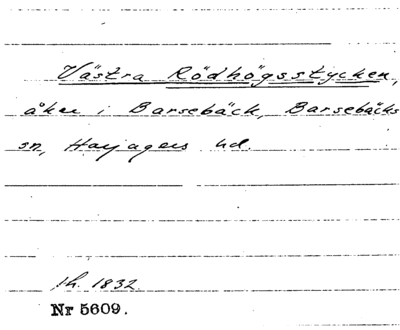 Västra Rödhögsstycken,
åker i Barsebäck, Barsebäcks
sn, Harjagers hd.
1832.
Nr 5609.